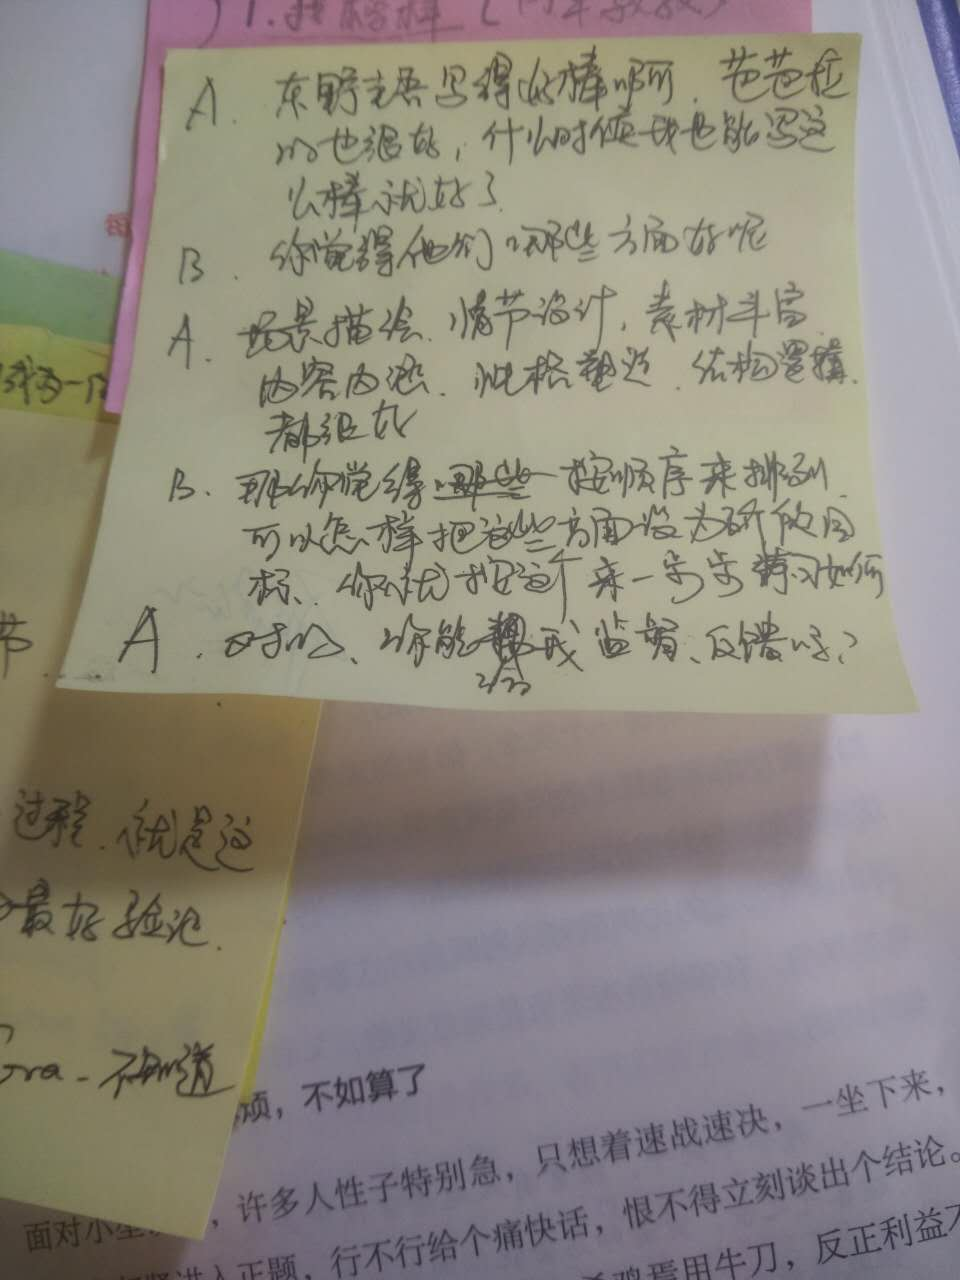 1. 找榜样
A. 东野圭吾写得好棒啊, 芭芭拉
的也很好, 什么时候我也能写这
么棒就好了.
B. 你觉得他们哪些方面好呢
A. 场景描绘. 情节设计, 素材丰富.
内容内涵. 性格塑造. 结构逻辑.
都很好
B. 那你觉得哪些按顺序来排列.
可以怎样把这些方面设为研究目
标. 你就按这个来一步步练习如何
A. 对的、你能帮我监督、反馈吗?
成为一
节
过程. 就是这
最好验证.
不知道
烦，不如算了
，许多人性子特别急，只想着速战速决，一坐下来，
面对小
进入正题，行不行给个痛快话，恨不得立刻谈出个结论。
鸡焉用牛刀，反正利益不